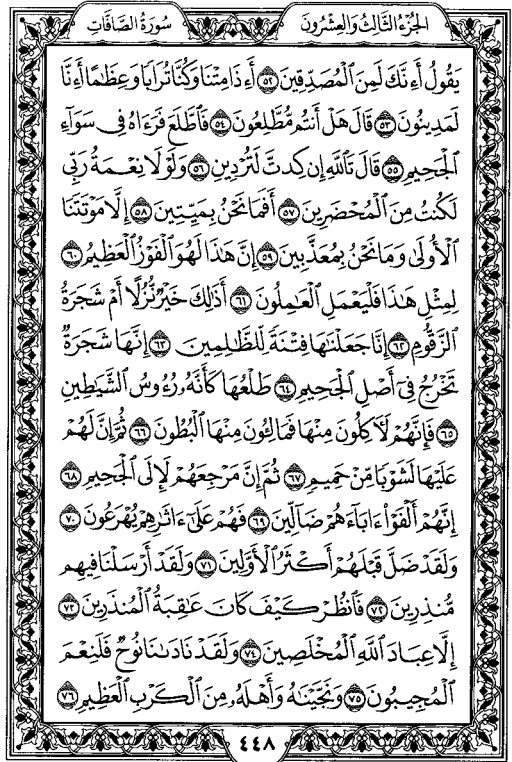 الجزء الثالث والعشرون
سورة الصافات
يَقُولُ أَءِنَّكَ لَمِنَ ٱلْمُصَدِّقِينَ ۝٥٢ أَءِذَا مِتْنَا وَكُنَّا تُرَابًا وَعِظَٰمًا أَءِنَّا
لَمَدِينُونَ ۝٥٣ قَالَ هَلْ أَنتُم مُّطَّلِعُونَ ۝٥٤ فَٱطَّلَعَ فَرَءَاهُ فِى سَوَآءِ
ٱلْجَحِيمِ ۝٥٥ قَالَ تَٱللَّهِ إِن كِدتَّ لَتُرْدِينِ ۝٥٦ وَلَوْلَا نِعْمَةُ رَبِّى
لَكُنتُ مِنَ ٱلْمُحْضَرِينَ ۝٥٧ أَفَمَا نَحْنُ بِمَيِّتِينَ ۝٥٨ إِلَّا مَوْتَتَنَا
ٱلْأُولَىٰ وَمَا نَحْنُ بِمُعَذَّبِينَ ۝٥٩ إِنَّ هَٰذَا لَهُوَ ٱلْفَوْزُ ٱلْعَظِيمُ ۝٦٠
لِمِثْلِ هَٰذَا فَلْيَعْمَلِ ٱلْعَٰمِلُونَ ۝٦١ أَذَٰلِكَ خَيْرٌ نُّزُلًا أَمْ شَجَرَةُ
ٱلزَّقُّومِ ۝٦٢ إِنَّا جَعَلْنَٰهَا فِتْنَةً لِّلظَّٰلِمِينَ ۝٦٣ إِنَّهَا شَجَرَةٌ
تَخْرُجُ فِىٓ أَصْلِ ٱلْجَحِيمِ ۝٦٤ طَلْعُهَا كَأَنَّهُۥ رُءُوسُ ٱلشَّيَٰطِينِ
۝٦٥ فَإِنَّهُمْ لَءَاكِلُونَ مِنْهَا فَمَالِـُٔونَ مِنْهَا ٱلْبُطُونَ ۝٦٦ ثُمَّ إِنَّ لَهُمْ
عَلَيْهَا لَشَوْبًا مِّنْ حَمِيمٍ ۝٦٧ ثُمَّ إِنَّ مَرْجِعَهُمْ لَإِلَى ٱلْجَحِيمِ ۝٦٨
إِنَّهُمْ أَلْفَوْا۟ ءَابَآءَهُمْ ضَآلِّينَ ۝٦٩ فَهُمْ عَلَىٰٓ ءَاثَٰرِهِمْ يُهْرَعُونَ ۝٧٠
وَلَقَدْ ضَلَّ قَبْلَهُمْ أَكْثَرُ ٱلْأَوَّلِينَ ۝٧١ وَلَقَدْ أَرْسَلْنَا فِيهِم
مُّنذِرِينَ ۝٧٢ فَٱنظُرْ كَيْفَ كَانَ عَٰقِبَةُ ٱلْمُنذَرِينَ ۝٧٣
إِلَّا عِبَادَ ٱللَّهِ ٱلْمُخْلَصِينَ ۝٧٤ وَلَقَدْ نَادَىٰنَا نُوحٌ فَلَنِعْمَ
ٱلْمُجِيبُونَ ۝٧٥ وَنَجَّيْنَٰهُ وَأَهْلَهُۥ مِنَ ٱلْكَرْبِ ٱلْعَظِيمِ ۝٧٦
٤٤٨